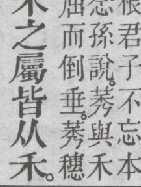 根君子不忘本
念孫說。莠與禾
屈而倒垂。莠穗
禾之屬皆从禾。